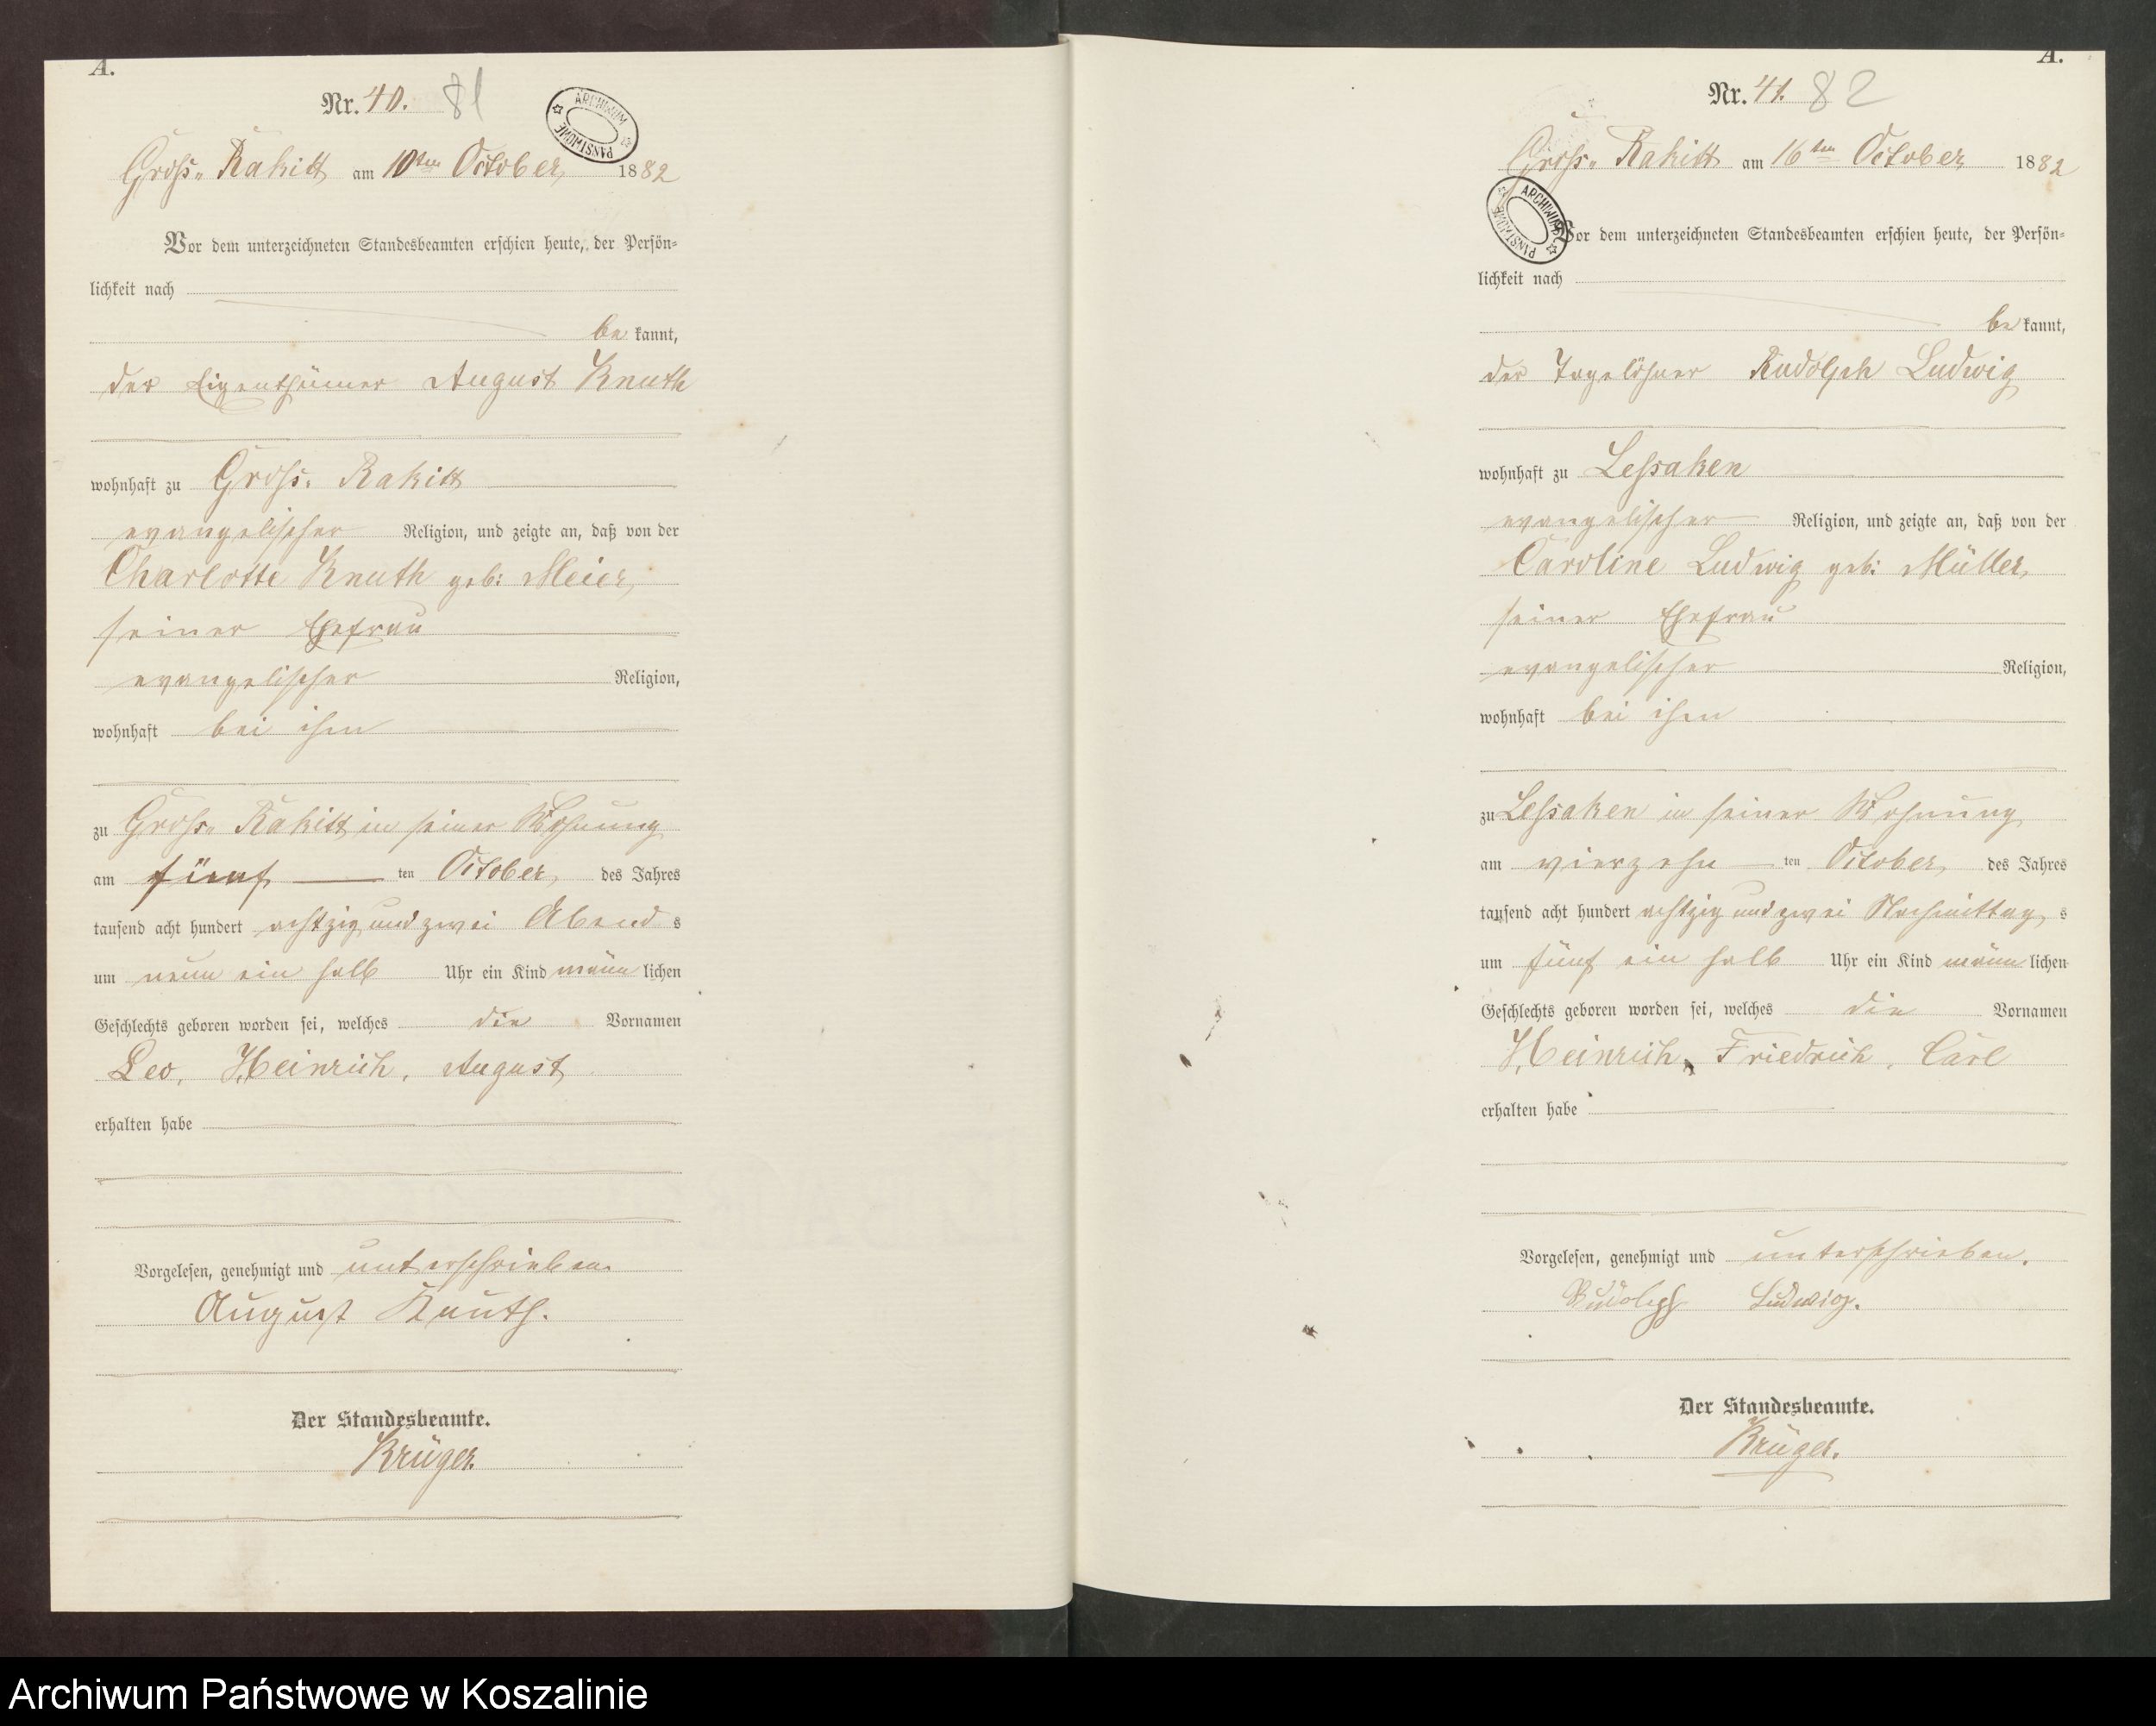 A.
Nr. 40. 81
ARCHIWUM PAŃSTWOWE
Groß- Rakitt am 10ten October 1882
Vor dem unterzeichneten Standesbeamten erschien heute, der Persön-
lichkeit nach
be kannt,
der Eigenthümer August Knuth
wohnhaft zu Groß- Rakitt
evangelischer Religion, und zeigte an, daß von der
Charlotte Knuth geb: Meier,
seiner Ehefrau
evangelischer Religion,
wohnhaft bei ihm
zu Groß- Rakitt in seiner Wohnung
am fünf ten October, des Jahres
tausend acht hundert achtzig und zwei Abend s
um neun ein halb Uhr ein Kind männ lichen
Geschlechts geboren worden sei, welches die Vornamen
Leo, Heinrich, August
erhalten habe
Vorgelesen, genehmigt und unterschrieben.
August Knuth.
Der Standesbeamte.
Krüger.
A.
Nr. 41. 82
Groß- Rakitt am 16ten October 1882
ARCHIWUM PAŃSTWOWE
Vor dem unterzeichneten Standesbeamten erschien heute, der Persön-
lichkeit nach
be kannt,
der Tagelöhner Rudolph Ludwig
wohnhaft zu Leßaken
evangelischer Religion, und zeigte an, daß von der
Caroline Ludwig geb: Müller,
seiner Ehefrau
evangelischer Religion,
wohnhaft bei ihm
zu Leßaken in seiner Wohnung
am vierzehn ten October, des Jahres
tausend acht hundert achtzig und zwei Nachmittag s
um fünf ein halb Uhr ein Kind männ lichen
Geschlechts geboren worden sei, welches die Vornamen
Heinrich, Friedrich, Carl
erhalten habe
Vorgelesen, genehmigt und unterschrieben.
Rudolph Ludwig.
Der Standesbeamte.
Krüger.
Archiwum Państwowe w Koszalinie